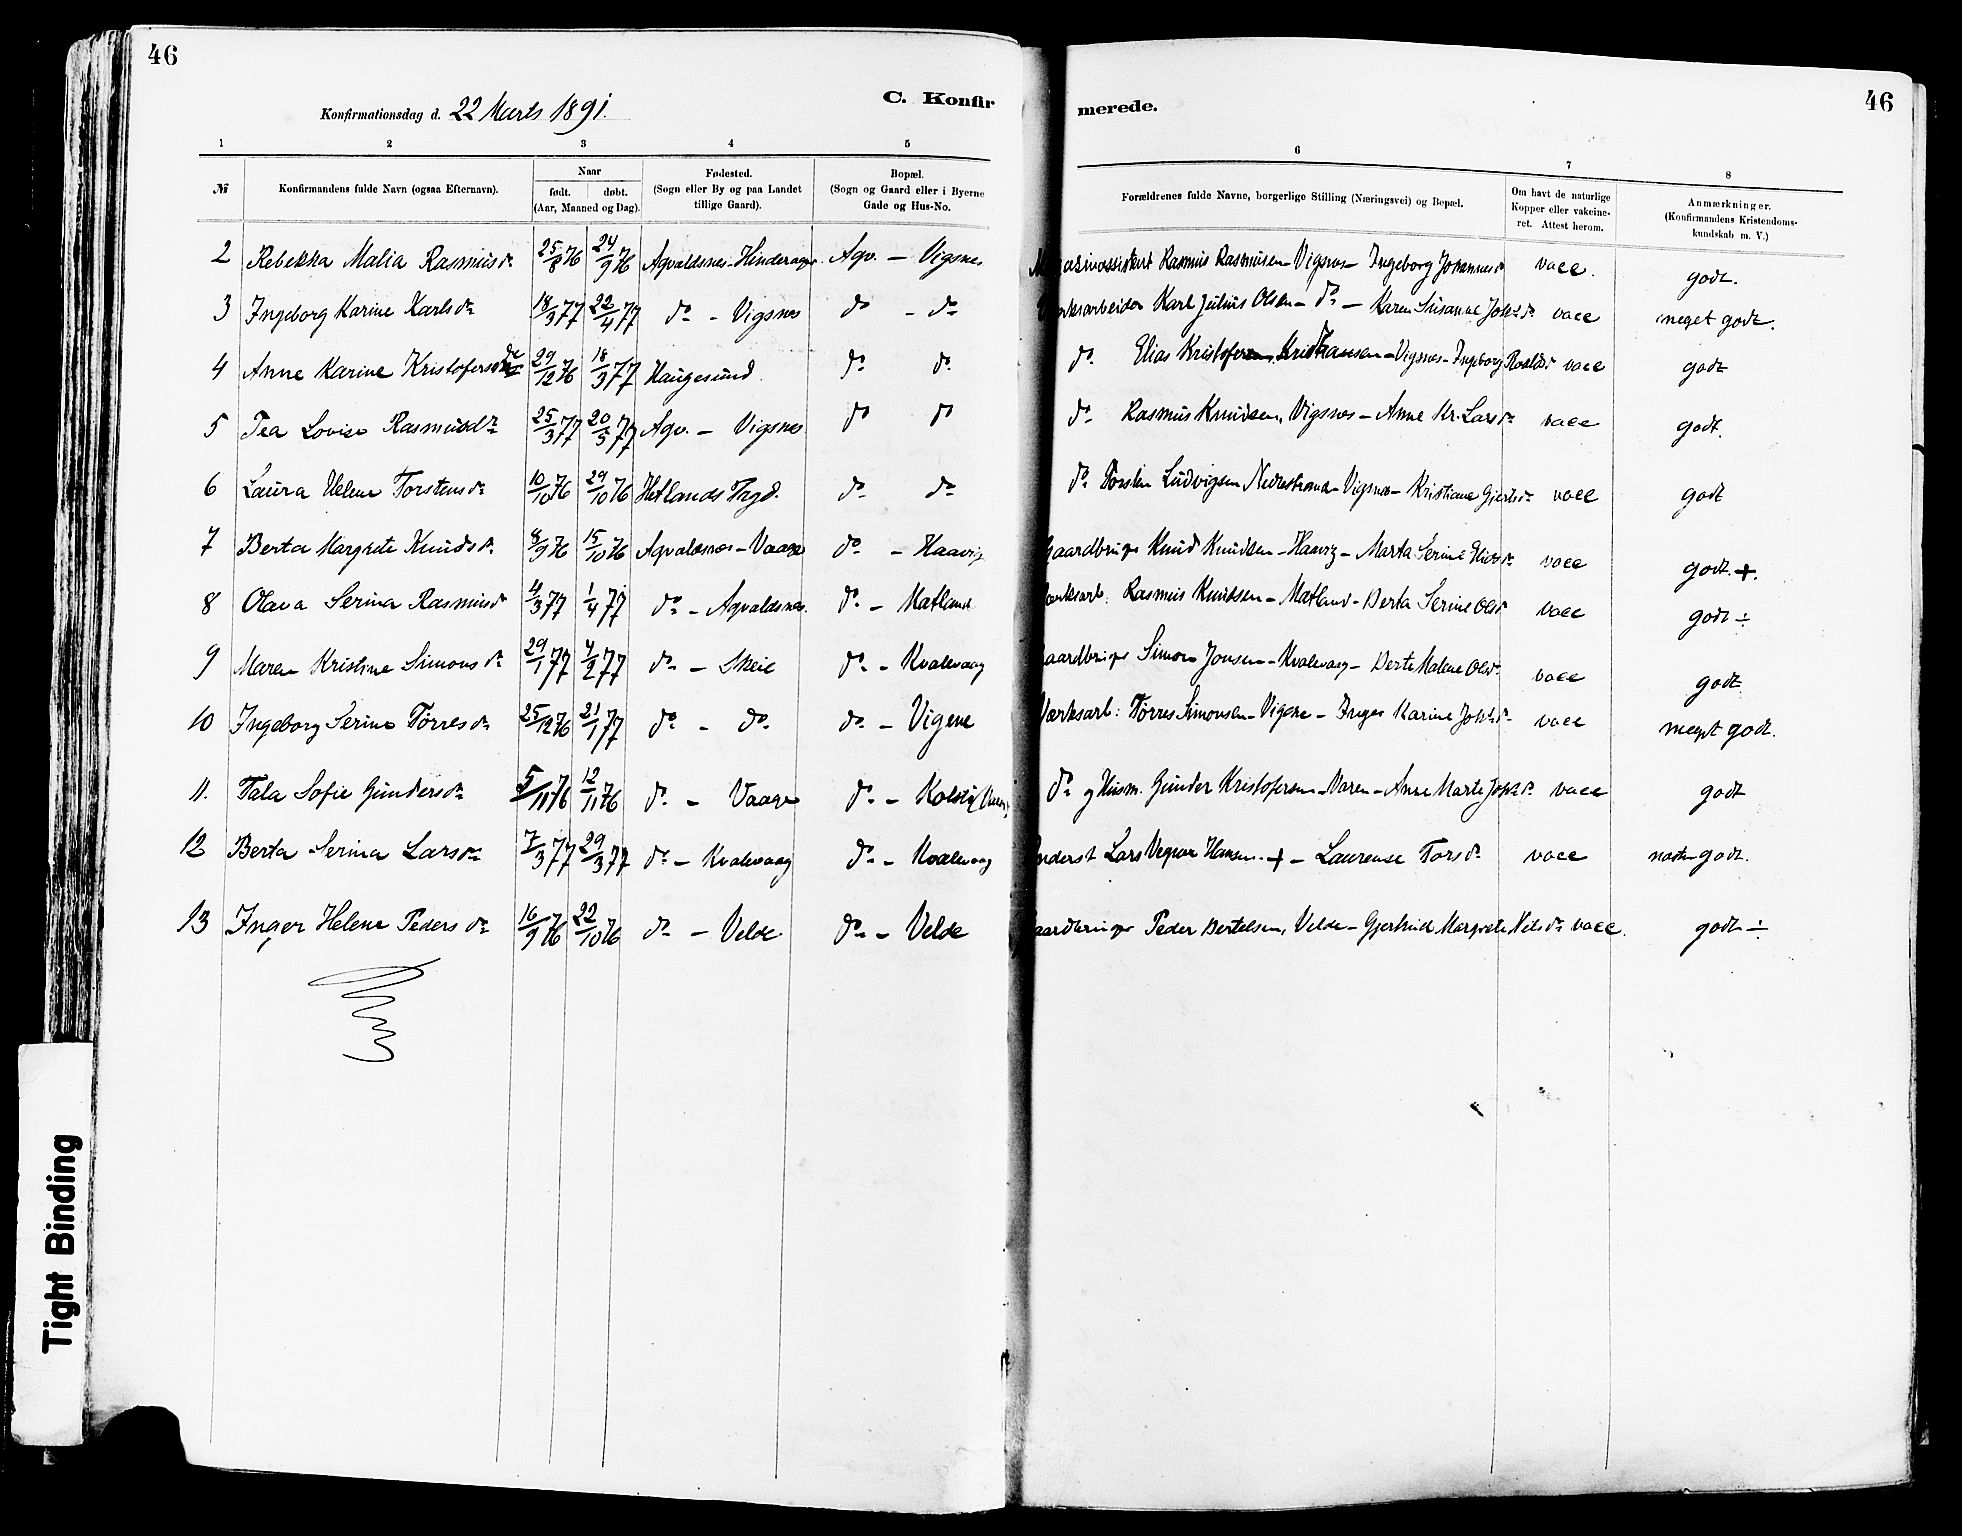 46
Konfirmationsdag d. 22 Marts 1891.
C. Konfir
merede.
46
1 2 3 4 5 6 7 8
№ Konfirmandens fulde Navn (ogsaa Efternavn). Naar født. døbt. (Aar, Maaned og Dag). Fødested. (Sogn eller By og paa Landet tillige Gaard). Bopæl. (Sogn og Gaard eller i Byerne Gade og Hus-No. Forældrenes fulde Navne, borgerlige Stilling (Næringsvei) og Bopæl. Om havt de naturlige Kopper eller vakcineret. Attest herom. Anmærkninger. (Konfirmandens Kristendomskundskab m. V.)
2 Rebekka Malia Rasmusdr 25/8 76 24/9 76 Agvaldsnes - Hinderager Agv. - Vigsnes Rasmus Rasmusen - Vigsnes - Ingeborg Johannesdr vacc. godt.
3 Ingeborg Karine Karlsdr 18/3 77 22/4 77 do - Vigsnes do - do Karl Julius Olsen - do - Karen Susanne Johsdr vacc meget godt.
4 Anne Karine Kristofersdr 29/12 76 18/3 77 Haugesund do do do Elias Kristofersen - Vigsnes - Ingeborg vacc godt
5 Tea Lovise Rasmusdr 25/3 77 20/5 77 Agv. - Vigsnes do do do Rasmus Knudsen, Vigsnes - Anne Kr. Larsdr vacc godt.
6 Laura Helene Torstensdr 10/10 76 29/10 76 Hetlands do do do Torsten Ludvigsen Nedrestrand - Vigsnes - Kristiane vacc godt
7 Berta Margrete Knudsdr 8/9 76 15/10 76 Agvaldsnes - Vaage do - Haavig Gaardbruger Knud Knudsen - Haavig - Marta Serine vacc godt. +.
8 Olava Serina Rasmusdr 4/3 77 1/4 77 do - Agvaldsnes. do - Matland Værksarb. Rasmus Knudsen - Matland - Berta Serine Olsdr vacc godt ÷
9 Maren Kristine Simonsdr 29/1 77 4/2 77 do - Skeie do - Kvalevaag Gaardbruger Simon Jonsen - Kvalevaag - Berte Malene Olsdr. vacc godt
10 Ingeborg Serine Tørresdr 25/12 76 21/1 77 do - do. do - Vigene Værksarb: Tørres Simonsen - Vigene - Inger Karine Johsdr vacc meget godt.
11. Tala Sofie Gundersdr 5/11 76 12/11 76 do - Vaage do - do og Husm. Gunder Kristofersen - Varen - Anne Marte Johsdr vacc godt
12 Berta Serina Larsdr 7/3 77 29/3 77 do - Kvalevaag do - Kvalevaag Lars Hansen. + - Laurense Torsdr vacc godt.
13 Inger Helene Pedersdr 16/9 76 22/10 76 do - Velde do - Velde Gaardbruger Peder Bertelsen, Velde - Gjertrud Margrete Nilsdr vacc. godt ÷
Tight Binding